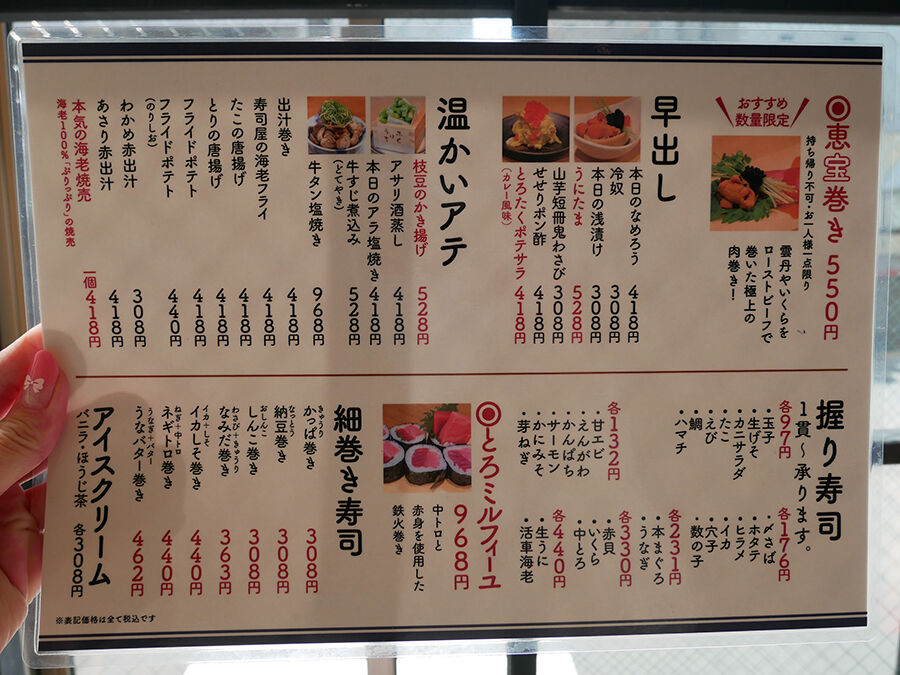 おすすめ
数量限定
◎恵宝巻き 550円
持ち帰り不可・お一人様一点限り
雲丹やいくらを
ローストビーフで
巻いた極上の
肉巻き!
早出し
本日のなめろう 418円
冷奴 308円
本日の浅漬け 308円
うにたま 528円
山芋短冊鬼わさび 308円
せせりポン酢 418円
とろたくポテサラ 418円
(カレー風味)
温かいアテ
枝豆のかき揚げ 528円
アサリ酒蒸し 418円
本日のアラ塩焼き 418円
牛すじ煮込み 528円
(どてやき)
牛タン塩焼き 968円
出汁巻き 418円
寿司屋の海老フライ 418円
たこの唐揚げ 418円
とりの唐揚げ 418円
フライドポテト 418円
フライドポテト 440円
(のりしお)
わかめ赤出汁 308円
あさり赤出汁 418円
本気の海老焼売 一個418円
海老100%「ぷりっぷり」の焼売
握り寿司
1貫〜承ります。
各97円
・玉子
・生げそ
・カニサラダ
・たこ
・えび
・鯛
・ハマチ
各176円
・〆さば
・ホタテ
・ヒラメ
・イカ
・穴子
・数の子
各132円
・甘エビ
・えんがわ
・かんぱち
・サーモン
・かにみそ
・芽ねぎ
各231円
・本まぐろ
・うなぎ
各330円
・赤貝
・いくら
・中とろ
各440円
・生うに
・活車海老
◎とろミルフィーユ
968円
中トロと
赤身を使用した
鉄火巻き
細巻き寿司
きゅうり
かっぱ巻き 308円
なっとう
納豆巻き 308円
おしんこ
しんこ巻き 308円
わさび+きゅうり
なみだ巻き 363円
イカ+しそ
イカしそ巻き 440円
ねぎ+中トロ
ネギトロ巻き 440円
うなぎ+バター
うなバター巻き 462円
アイスクリーム
バニラ・ほうじ茶 各308円
※表記価格は全て税込です